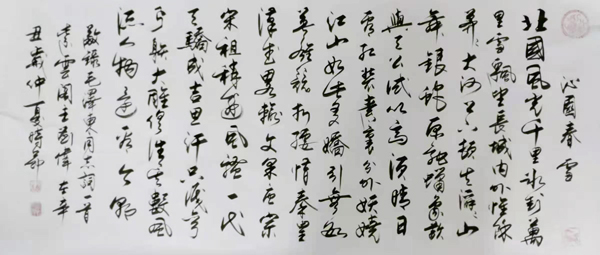 沁園春 雪
北國風光千里冰封萬
里雪飄望長城内外惟餘
莽莽大河上下頓失滔滔山
舞銀蛇原馳蠟象欲
與天公試比高須晴日
看紅裝素裹分外妖嬈
江山如此多嬌引無數
英雄競折腰惜秦皇
漢武略輸文采唐宗
宋祖稍遜風騷一代
天驕成吉思汗只識彎
弓射大雕俱往矣數風
流人物還看今朝
敬錄毛澤東同志詞一首
雲閣主 辛
丑歲仲夏